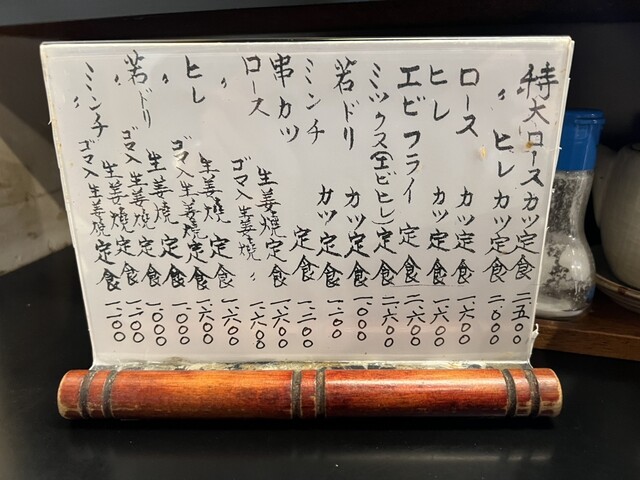 特大ロースカツ定食 二.五〇〇
〃 ヒレカツ定食 二.〇〇〇
ロースカツ定食 一.六〇〇
ヒレカツ定食 一.六〇〇
エビフライ定食 二.六〇〇
ミックス(エビヒレ)定食 二.六〇〇
若ドリカツ定食 一.〇〇〇
ミンチカツ定食 一.一〇〇
串カツ定食 一.二〇〇
ロース生姜焼定食 一.六〇〇
〃 ゴマ入生姜焼〃 一.六〇〇
ヒレ生姜焼定食 一.六〇〇
〃 ゴマ入生姜焼定食 一.六〇〇
若ドリ生姜焼定食 一.〇〇〇
〃 ゴマ入生姜焼定食 一.〇〇〇
ミンチ生姜焼定食 一.一〇〇
〃 ゴマ入生姜焼定食 一.一〇〇